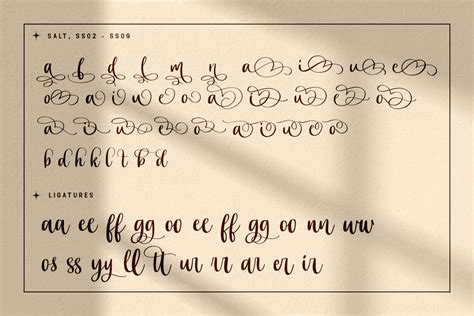 SALT, SS02 - SS09
a b d l m n a i u e
o a i u e o a i u e o
a i u e o a i u e o
b d h k l t b d l
LIGATURES
aa ee ff gg oo ee ff gg oo nn ww
os ss yy ll tt ur rr ar er ir